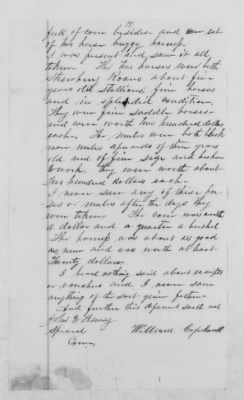 full of corn besides and one set
of two horse buggy harness.
I was present and saw it all
taken. The two horses were both
Strawberry Roans about five
years old Stallions, fine horses
and in splendid condition.
They were fine saddle horses
and were worth two hundred dollars
each. The mules were both black
mare mules upwards of three years
old and of fine size and broken
to work. They were worth about
two hundred dollars each.
I never saw any of these hor-
ses or mules after the days they
were taken. The corn was worth
a dollar and a quarter a bushel
The harness was about as good
as new and was worth at least
Twenty dollars.
I heard nothing said about receipts
or vouchers and I never saw
anything of the sort given for them.
And further this deponent saith not
John D. Kenney
Special William Copeland
Com